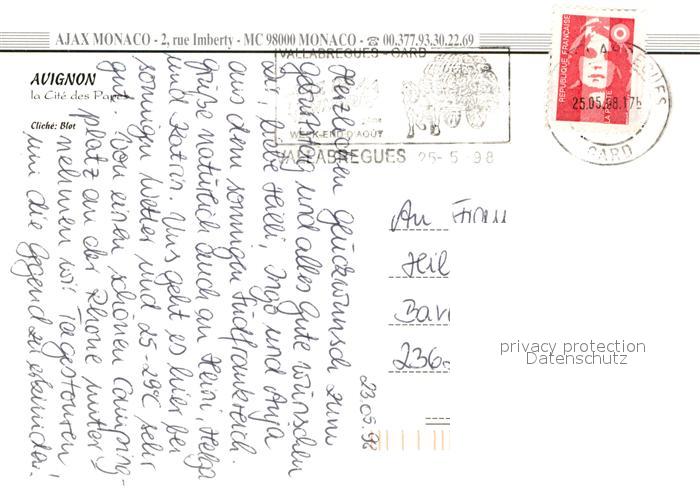 AJAX MONACO - 2, rue Imberty - MC 98000 MONACO - 00.377.93.30.22.69
AVIGNON
la Cité des Papes
Cliché: Blot
VALLABREGUES - GARD
WEEK-END D'AOÛT
VALLABREGUES 25-5-98
REPUBLIQUE FRANÇAISE
LA POSTE
25.05.98.17h
GARD
23.05.98
Herzlichen Glückwunsch zum
Geburtstag und alles Gute wünschen
Dir, liebe Heidi, Ingo und Anja
aus dem sonnigen Südfrankreich.
Grüße natürlich auch an Heini, Helga
und Katrin. Uns geht es hier bei
sonnigem Wetter und 25-29C sehr
gut. Von einem schönen Camping-
platz an der Rhone unter-
nehmen wir Tagestouren
um die Gegend zu erkunden!
An
Hil
236
privacy protection
Datenschutz